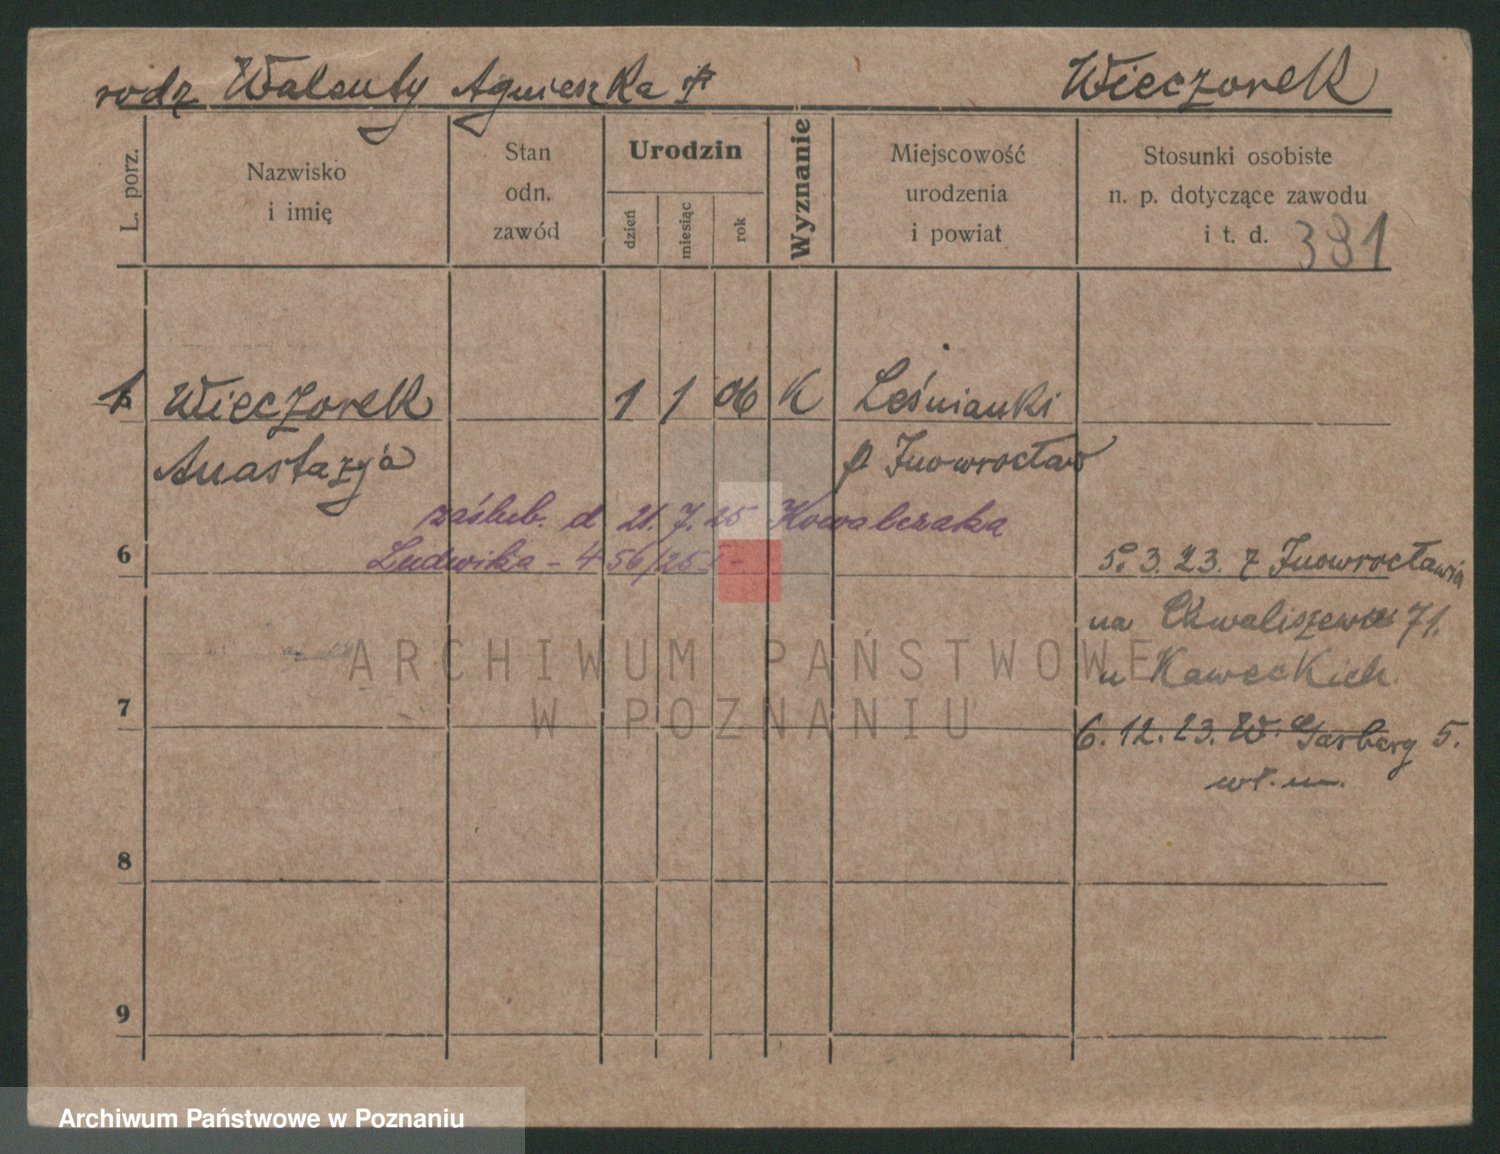 rodz Walenty Agnieszka Wieczorek
L. porz.
Nazwisko
i imię
Stan
odn.
zawód
Urodzin
dzień
miesiąc
rok
Wyznanie
Miejscowość
urodzenia
i powiat
Stosunki osobiste
n. p. dotyczące zawodu
i t. d. 391
1 Wieczorek 1 1 06 K Leśnianki
Anastazyja p Inowrocław
zaślub. d 21. 7. 25 Kowalczaka
Ludwika - 456/25
6
5. 3. 23. z Inowrocławia
na Chwaliszewo 71.
u Kaweckich.
ARCHIWUM PAŃSTWOWE
W POZNANIU
7
6. 12. 23. W. Garbary 5.
wł. m.
8
9
Archiwum Państwowe w Poznaniu